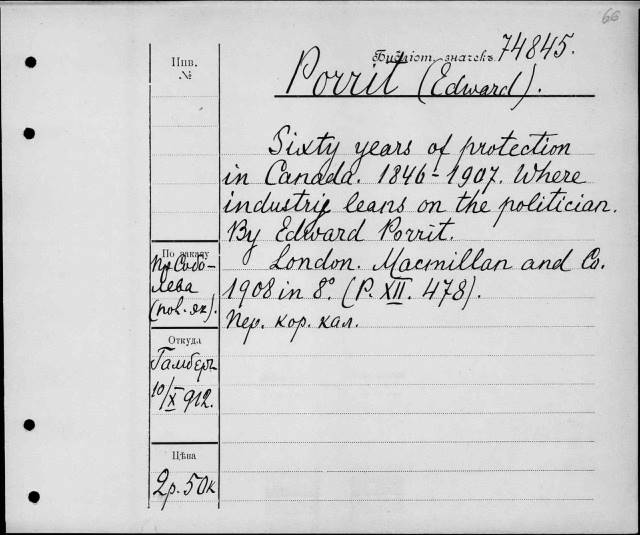 66
Инв.
№
Библіот. значекъ 74845.
Porrit (Edward).
Sixty years of protection
in Canada. 1846-1907. Where
industrie leans on the politician.
By Edward Porrit.
London. Macmillan and Co.
1908 in 8°. (P. XII. 478).
Пер. кор. кал.
По заказу
Собо-
лева
Откуда
10/X 912.
Цѣна
2р. 50к